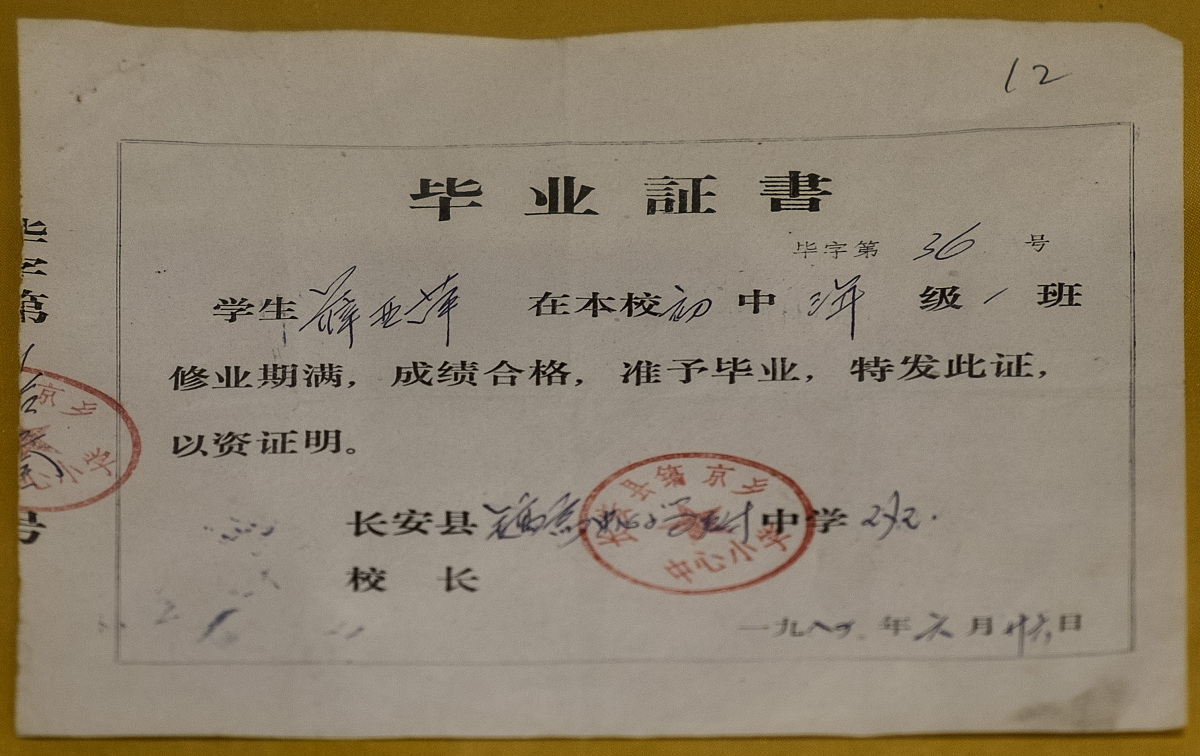 12
毕业証書
毕字第 36 号
学生薛亚萍 在本校初中三年级一班
修业期满，成绩合格，准予毕业，特发此证，
以资证明。
长安县镐京 中学
校 长
一九八 年六月廿六日
长安县镐京乡
中心小学
毕字第
号
京乡
心小学